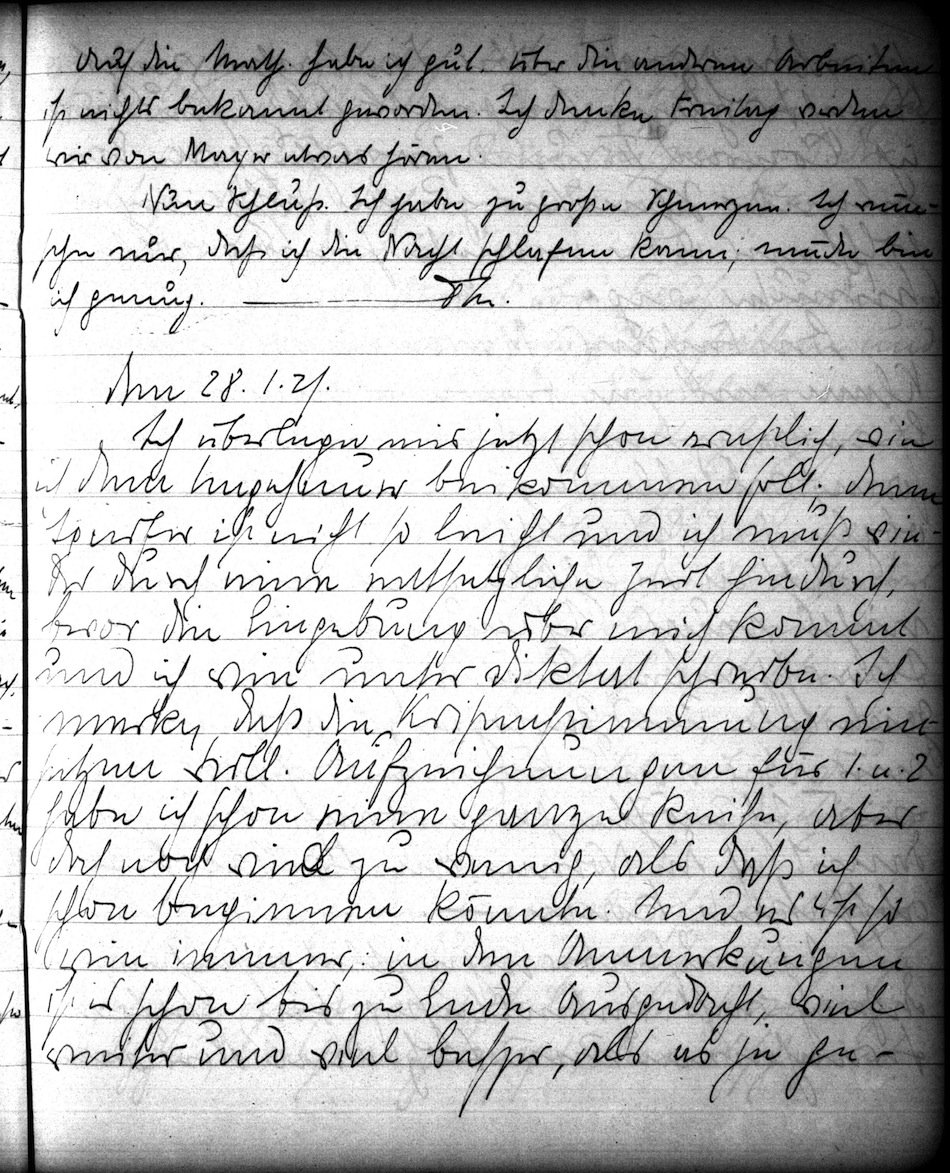 Auch die Math. habe ich gut. Über die anderen Arbeiten
ist nichts bekannt geworden. Ich denke Freitag werden
wir von Mayer etwas hören.
Nun Schluß. Ich habe zu große Schmerzen. Ich wün-
sche nur, daß ich die Nacht schlafen kann; müde bin
ich genug. ———
Den 28.1.21.
Ich überlege mir jetzt schon ernstlich, wie
ich dem beikommen soll; denn
ist nicht so leicht und ich muß wie-
der durch eine entsetzliche Zeit hindurch,
bevor die Eingebung über mich kommt
und ich wie unter Diktat schreibe. Ich
merke, daß die Krisenstimmung ein-
setzen will. Aufzeichnungen für 1. u. 2
habe ich schon eine ganze Reihe, aber
doch noch viel zu wenig, als daß ich
schon beginnen könnte. Und es ist so
wie immer: in den Anmerkungen
ist es schon bis zu Ende ausgedacht, viel
weiter und viel besser, als es je ge-